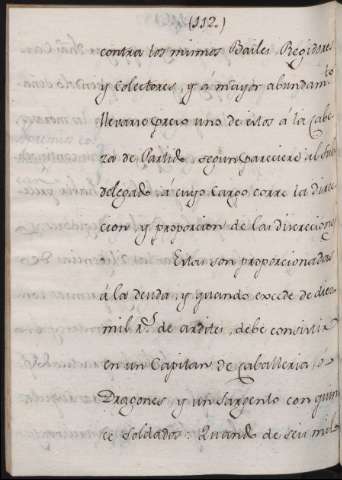 (112.)
contra los mismos Bailes, Regidores
y Colectores, y á mayor abundam.to
llevarse preso uno de estos á la Cabe
za de Partido, segun pareciere al Sub
delegado, á cuyo cargo corre la direc
cion, y proporcion de las
Estas son proporcionadas
á la deuda, y quando excede de diez
mil R.s de ardites, debe consistir
en un Capitan de Caballeria, o
Dragones y un Sargento con quin
ce Soldados: Quando de seis mil